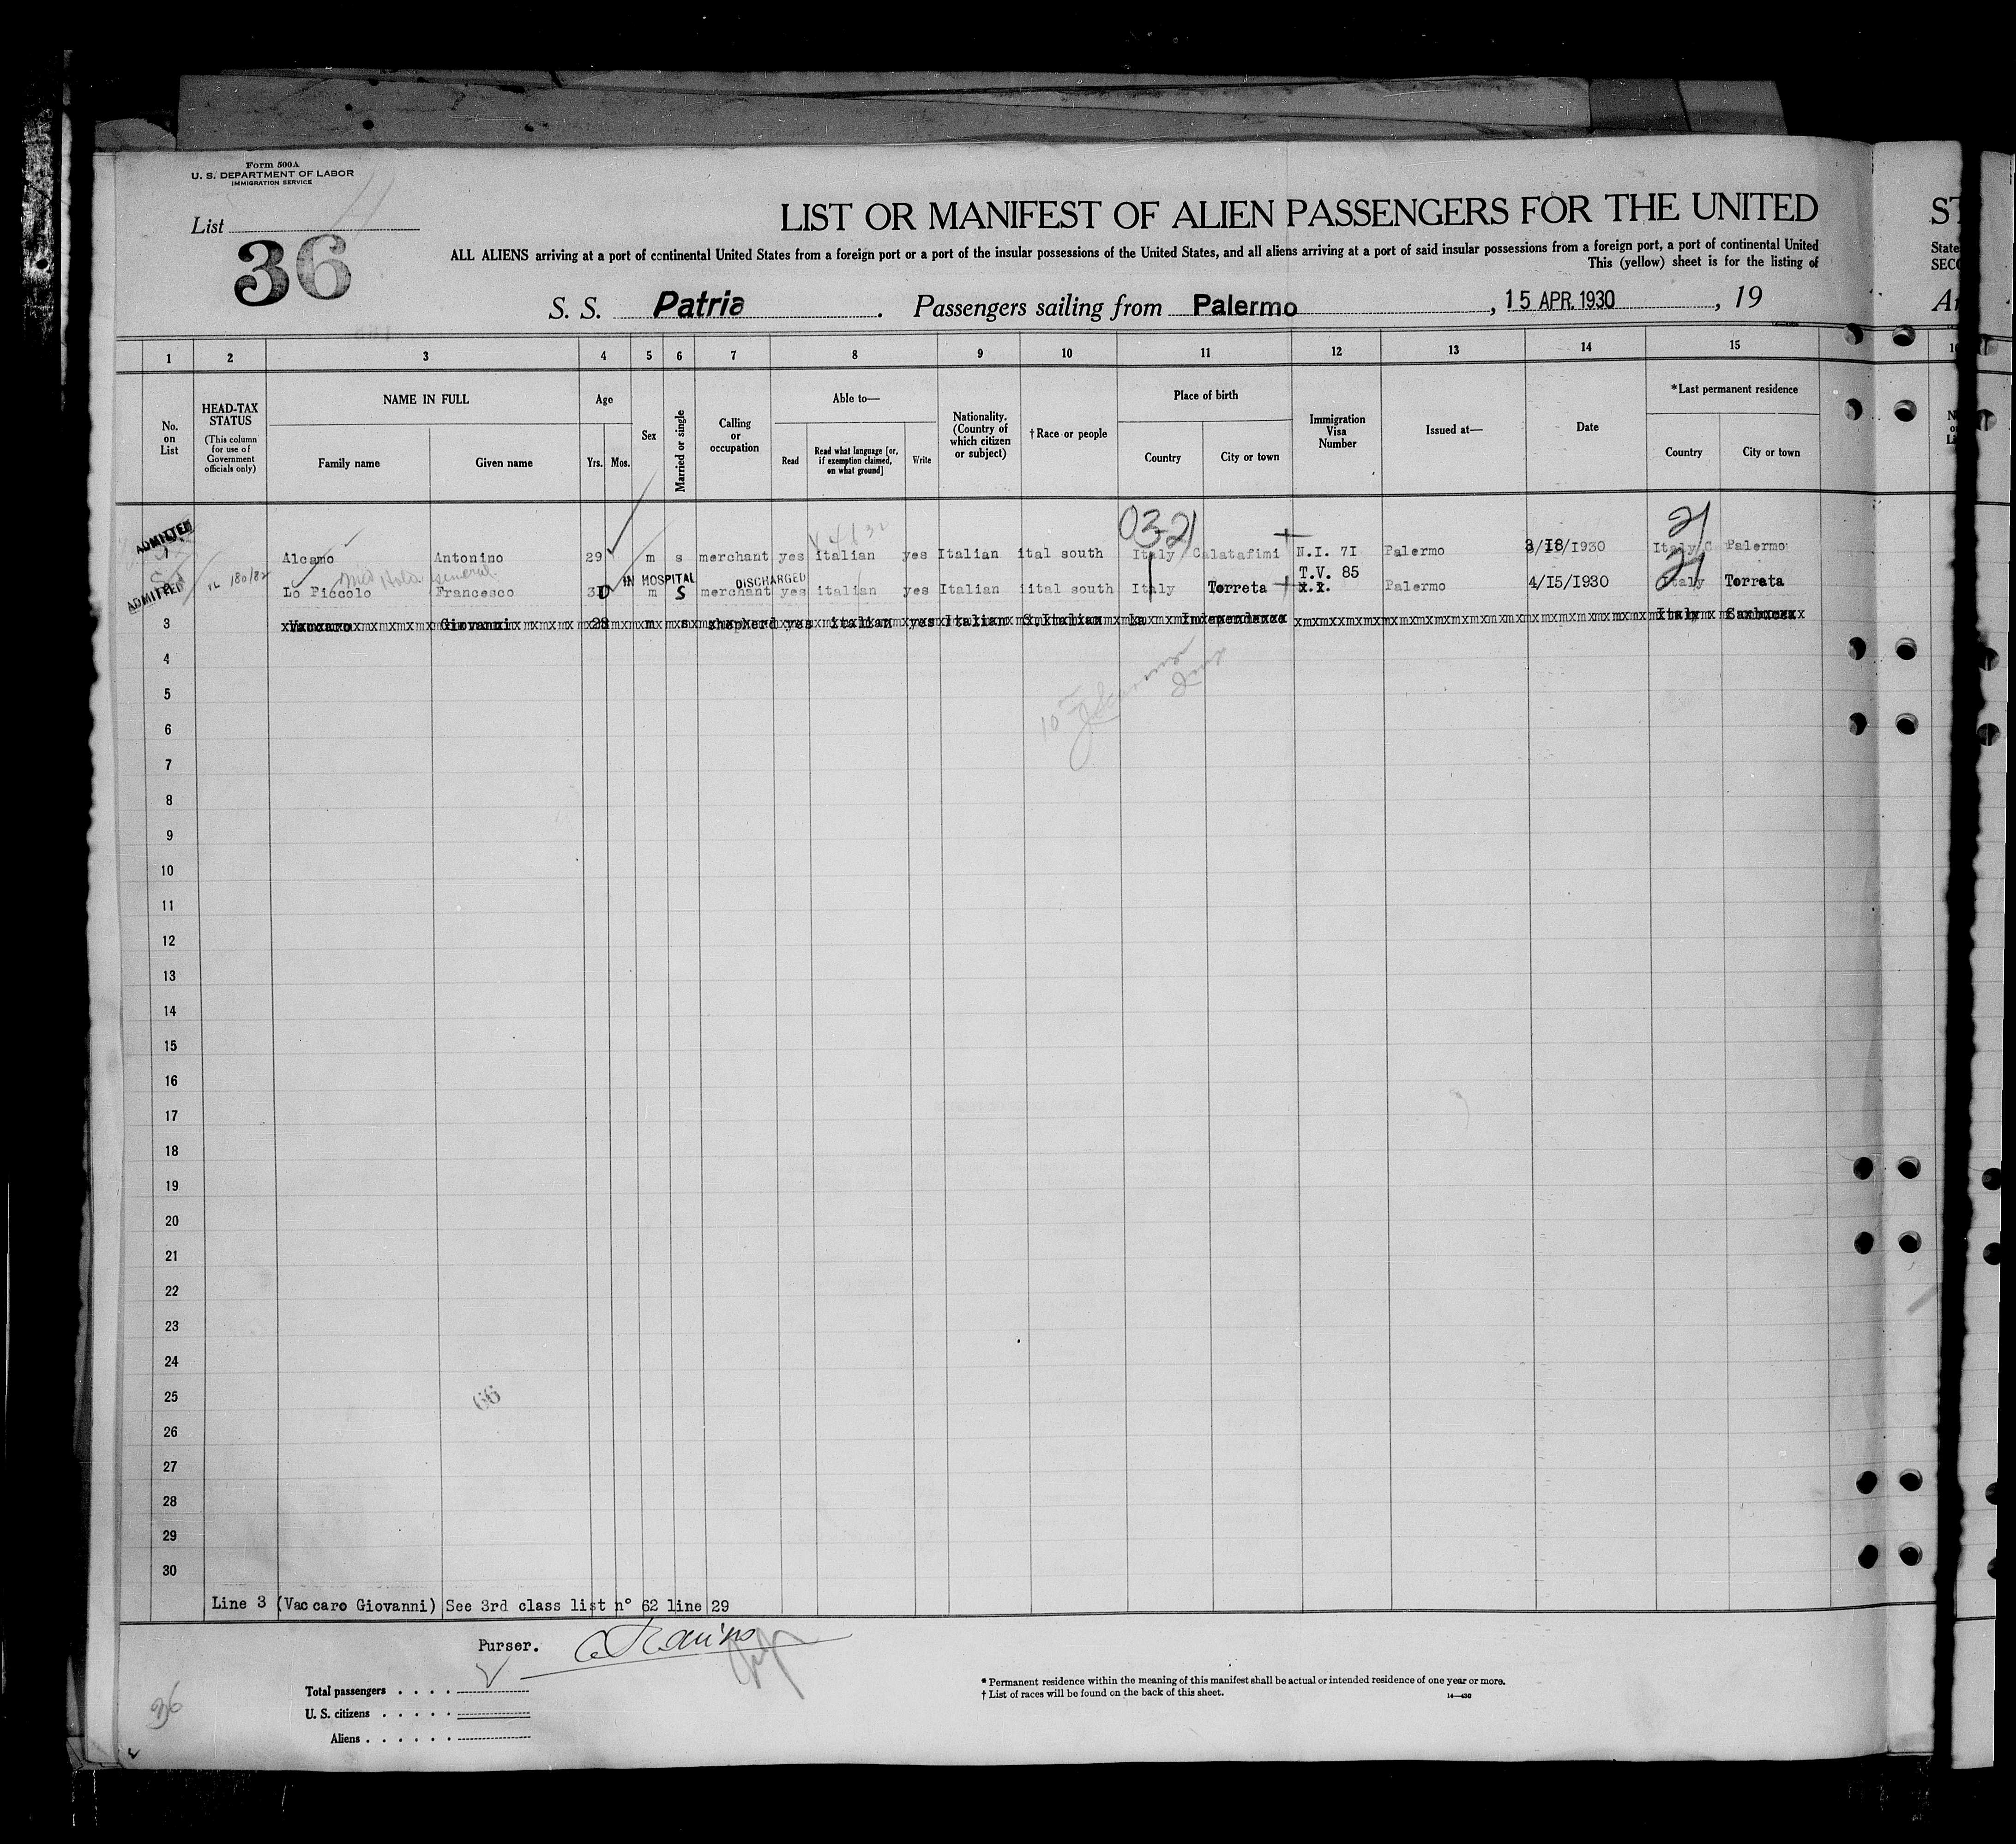 Form 500A
U. S. DEPARTMENT OF LABOR
IMMIGRATION SERVICE
List
36
LIST OR MANIFEST OF ALIEN PASSENGERS FOR THE UNITED
ST
ALL ALIENS arriving at a port of continental United States from a foreign port or a port of the insular possessions of the United States, and all aliens arriving at a port of said insular possessions from a foreign port, a port of continental United
State
This (yellow) sheet is for the listing of
S. S. Patria. Passengers sailing from Palermo, 15 APR. 1930, 19
1 2 3 4 5 6 7 8 9 10 11 12 13 14 15
No. on List
HEAD-TAX STATUS
(This column for use of Government officials only)
NAME IN FULL
Family name Given name
Age
Yrs. Mos.
Sex
Married or single
Calling or occupation
Able to—
Read
Read what language [or, if exemption claimed, on what ground]
Write
Nationality. (Country of which citizen or subject)
†Race or people
Place of birth
Country City or town
Immigration Visa Number
Issued at—
Date
*Last permanent residence
Country City or town
0321 21
ADMITTED 1 Alcamo Antonino 29 m s merchant yes italian yes Italian ital south Italy Calatafimi N.I. 71 Palermo 3/18/1930 Italy Palermo
180/82 IN HOSPITAL DISCHARGED T.V. 85 21
ADMITTED 2 Lo Piccolo Francesco m S merchant yes italian yes Italian iital south Italy Torreta x.x. Palermo 4/15/1930 Italy Torreta
3 Vaccaro Giovanni 28 m s shepherd yes italian yes Italian S.Italian La Independence Italy
4
5
6
7
8
9
10
11
12
13
14
15
16
17
18
19
20
21
22
23
24
25
66
26
27
28
29
30
Line 3 (Vaccaro Giovanni) See 3rd class list n° 62 line 29
Purser.
Total passengers . . . .
U. S. citizens . . . . .
Aliens . . . . . .
* Permanent residence within the meaning of this manifest shall be actual or intended residence of one year or more.
† List of races will be found on the back of this sheet.
14—430
36